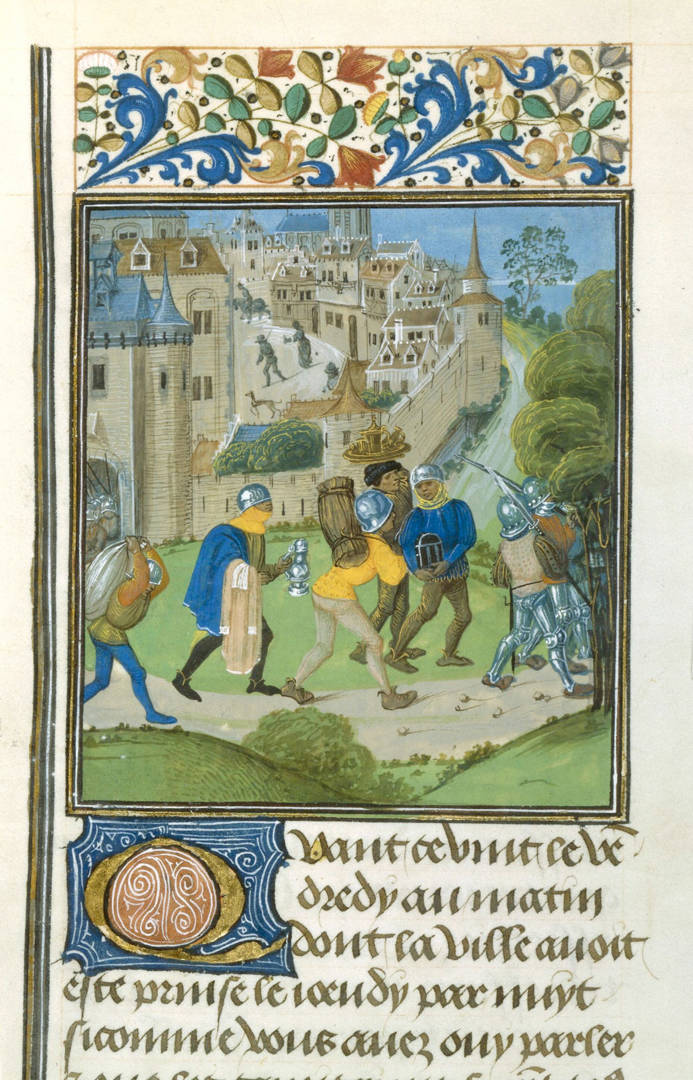 Quant ce vint le vē
dredy au matin
dont la ville auoit
este prinse le ioeudy par nuyt
sicomme vous auez ouy parler